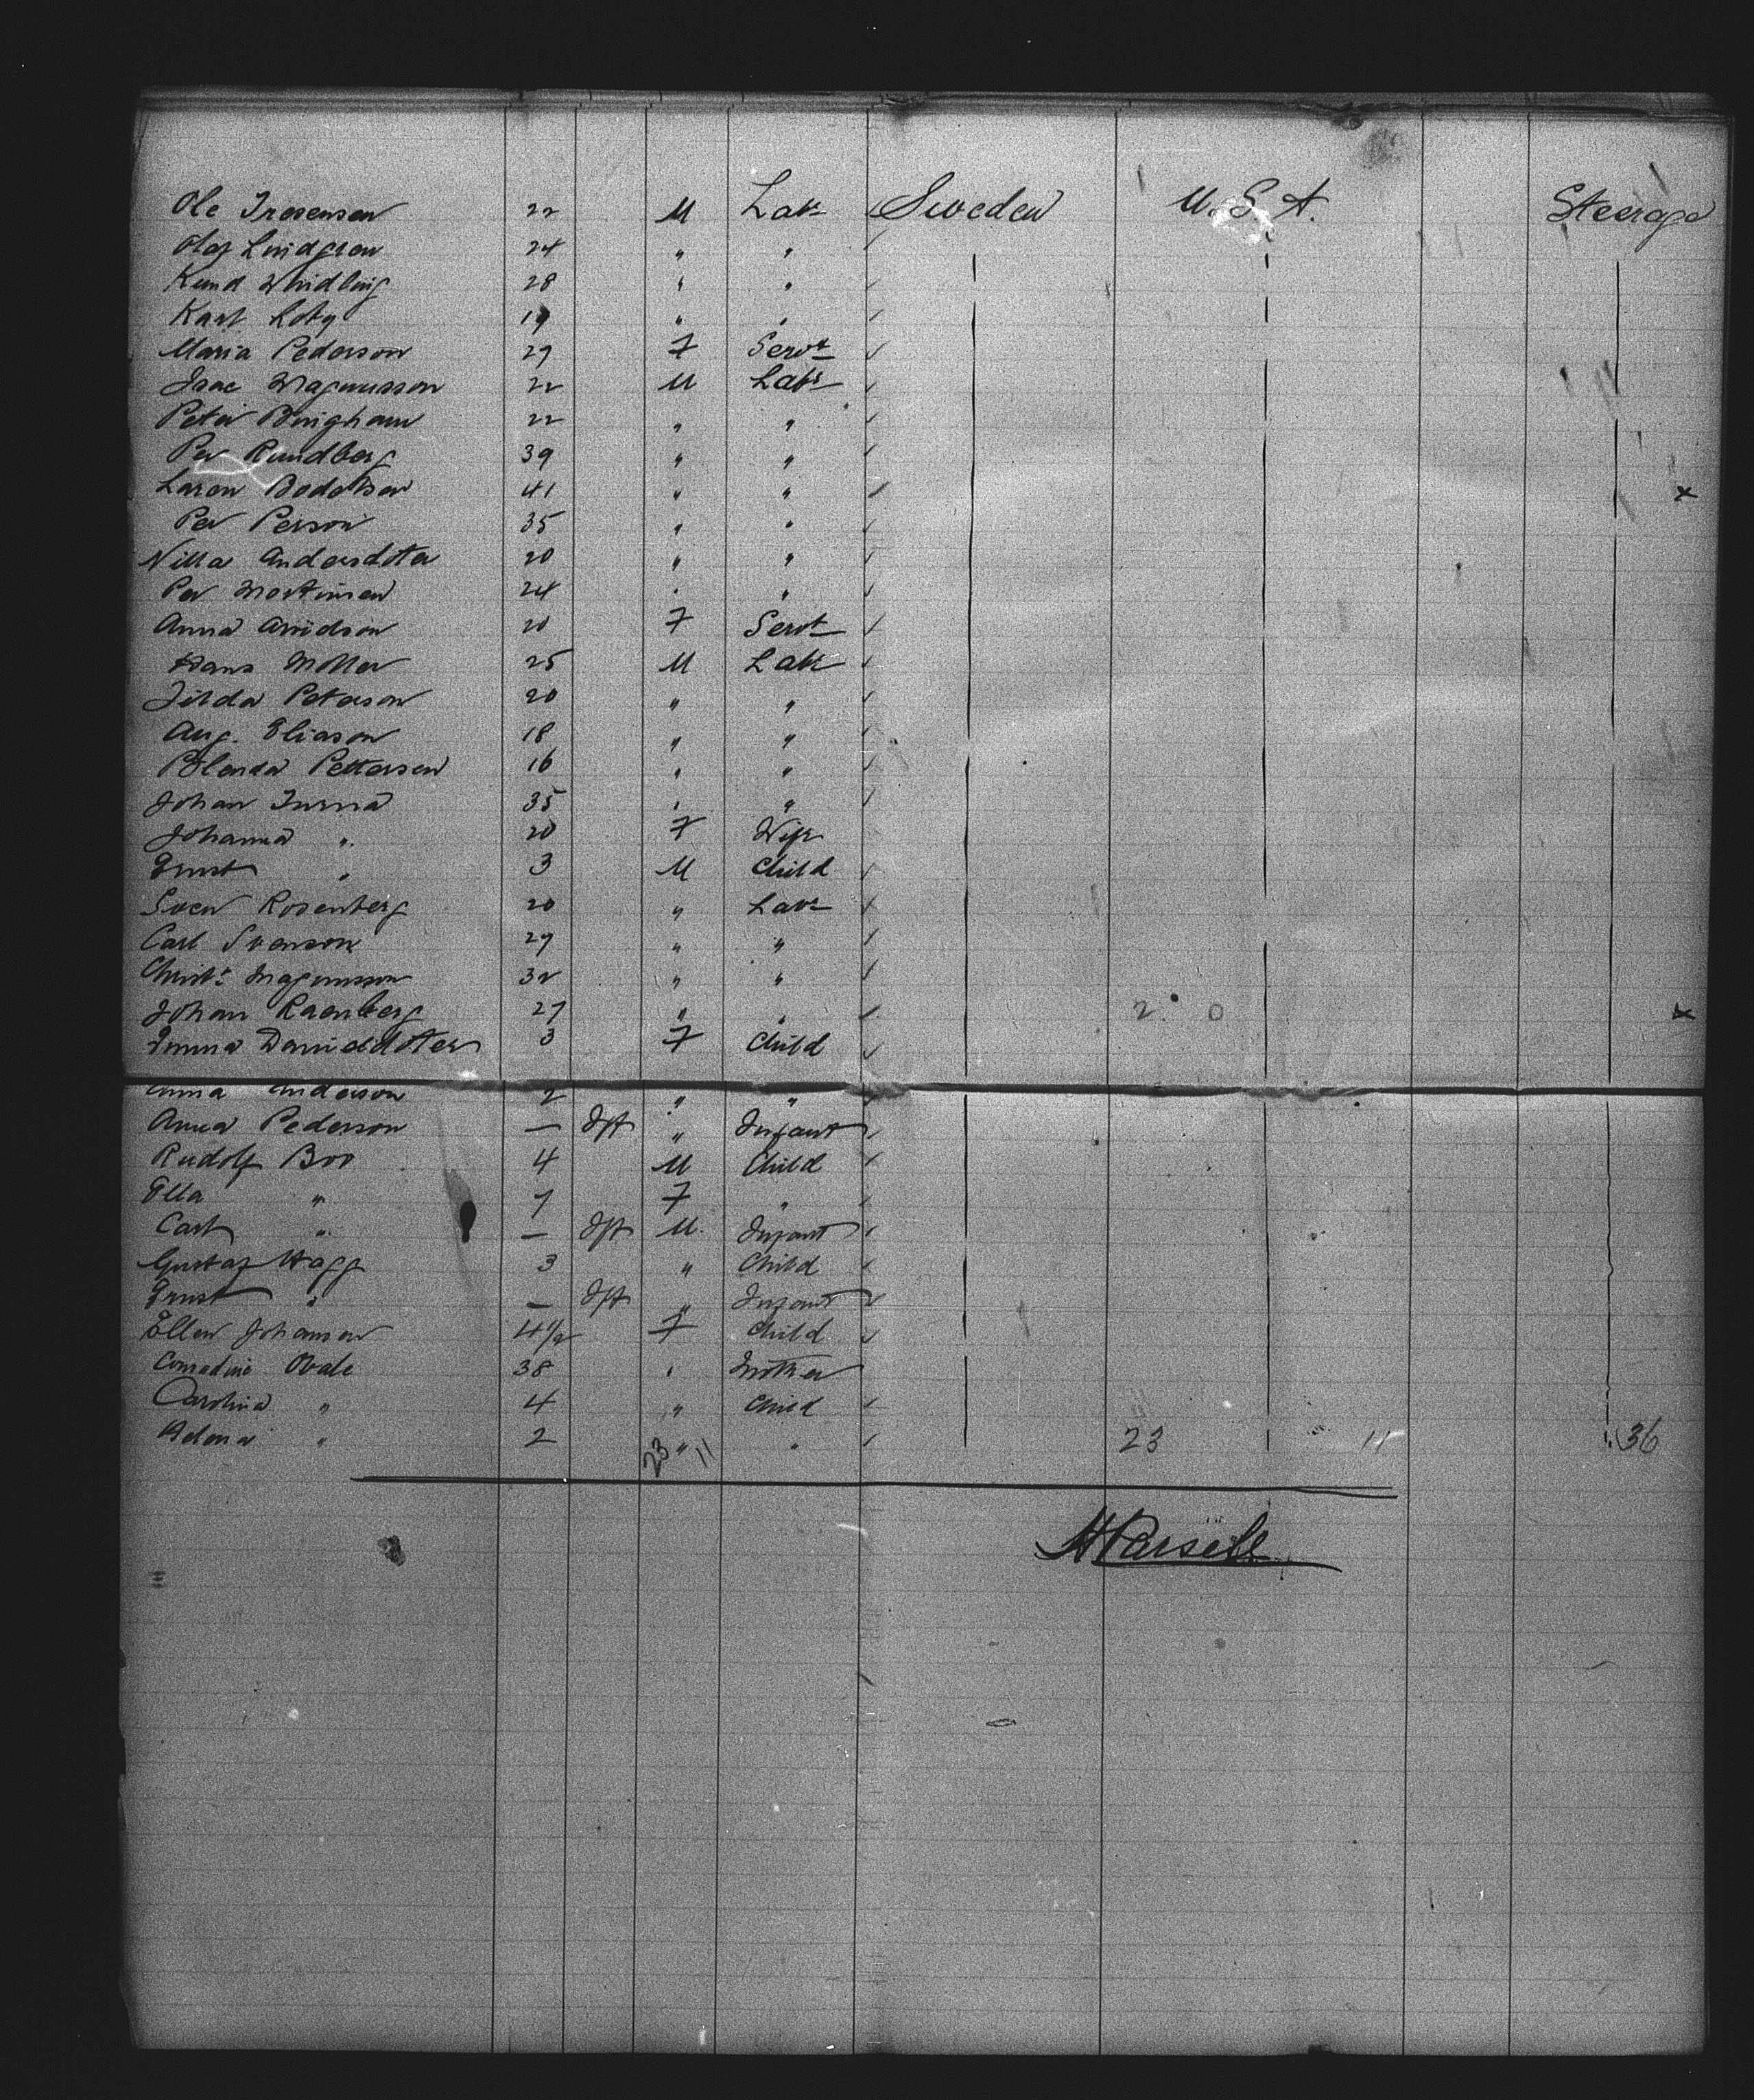 Ole Iresensen 22 M Labr Sweden U.S.A. Steerage
Olof Lindgren 24 " "
Knud Windling 28 " "
Karl Loty 19 " "
Maria Pederson 29 F Servt
Isac Magnusson 22 M Labr
Peter Bingham 22 " "
Per Rundberg 39 " "
Laron Bodelsen 41 " " x
Per Person 35 " "
Nilla Andersdoter 20 " "
Per Mortinsen 24 " "
Anna Arvidson 20 F Servt
Hans Moller 25 M Labr
Tilda Peterson 20 " "
Aug. Eliason 18 " "
Blenda Pettersen 16 " "
Johan Turna 35 " "
Johanna " 20 F Wife
Ernst " 3 M Child
Sven Rosenberg 20 " Labr
Carl Svenson 29 " "
Christ. Magnusson 32 " "
Johan Raenberg 27 " " 2. 0 x
Emma Danieldoter 3 F Child
Anna Anderson 2 " "
Anna Pederson — Ift " Infant
Rudolf Boo 4 M Child
Ella " 7 F "
Carl " — Ift M. Infant
Gustaf Hagg 3 " Child
Ernst " — Ift " Infant
Ellen Johansen 4 1/2 F Child
Ovale 38 " Mother
Carolina " 4 " Child
" 2 " " 23 11 36
23 11